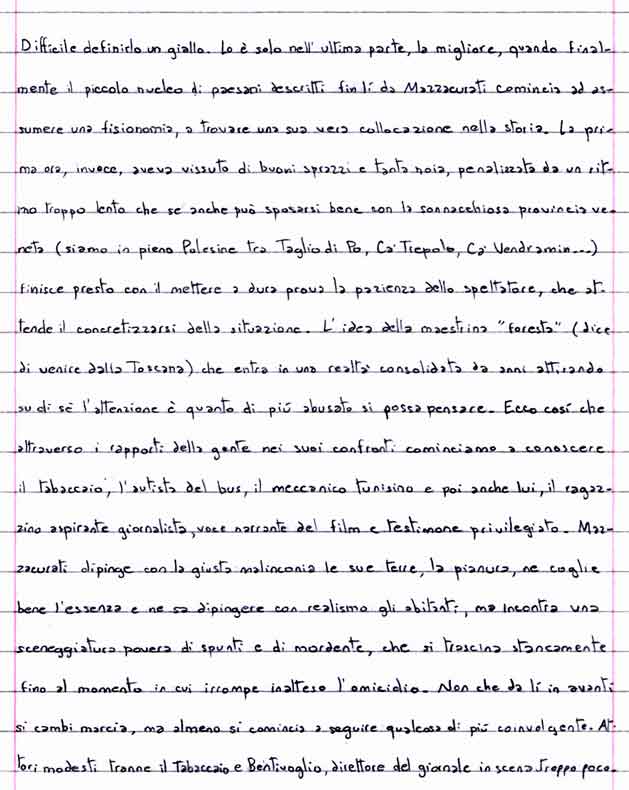 Difficile definirlo un giallo. Lo è solo nell'ultima parte, la migliore, quando final-
mente il piccolo nucleo di paesani descritti fin lí da Mazzacurati comincia ad as-
sumere una fisionomia, a trovare una sua vera collocazione nella storia. La pri-
ma ora, invece, aveva vissuto di buoni sprazzi e tanta noia, penalizzata da un rit-
mo troppo lento che se anche può sposarsi bene con la sonnacchiosa provincia ve-
neta (siamo in pieno Polesine tra Taglio di Po, Ca' Tiepolo, Ca' Vendramin...)
finisce presto con il mettere a dura prova la pazienza dello spettatore, che at-
tende il concretizzarsi della situazione. L'idea della maestrina "foresta" (dice
di venire dalla Toscana) che entra in una realtà consolidata da anni attirando
su di sè l'attenzione è quanto di piú abusato si possa pensare. Ecco cosí che
attraverso i rapporti della gente nei suoi confronti cominciamo a conoscere
il tabaccaio, l'autista del bus, il meccanico tunisino e poi anche lui, il ragaz-
zino aspirante giornalista, voce narrante del film e testimone privilegiato. Maz-
zacurati dipinge con la giusta malinconia le sue terre, la pianura, ne coglie
bene l'essenza e ne sa dipingere con realismo gli abitanti, ma incontra una
sceneggiatura povera di spunti e di mordente, che si trascina stancamente
fino al momento in cui irrompe inatteso l'omicidio. Non che da lí in avanti
si cambi marcia, ma almeno si comincia a seguire qualcosa di piú coinvolgente. At-
tori modesti tranne il tabaccaio e Bentivoglio, direttore del giornale in scena troppo poco.